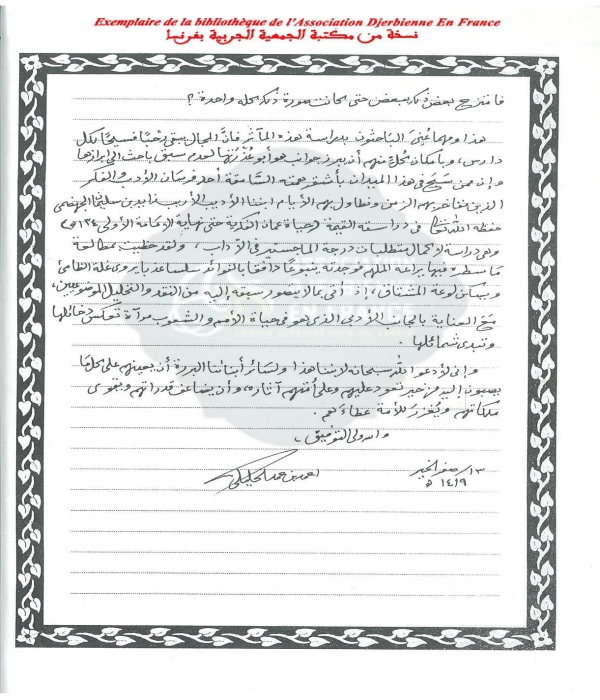 Exemplaire de la bibliothèque de l'Association Djerbienne En France
نسخة من مكتبة الجمعية الجربية بفرنسا
فامتزج بعض ذلك ببعض حتى كانت صورة ذلك كله واحدة؟
هذا ومهما عُنِيَ الباحثون بدراسة هذه المآثر فإنَّ المجال يبقى رحبًا فسيحًا لكل
دارس، وبإمكان كُلٍّ منهم أن يبرز جوانب هو أبو عُذْرتها لعدم سبق باحث إلى إبرازها
وإن ممن سبح في هذا الميدان بأشرعة همته السَّامقة أحد فرسان الأدب والفكر
الذين نفاخر بهم الزمن ونطاول بهم الأيام ابننا الأديب الأريب
حفظه الله تعالى في دراسته القيمة (حياة عمان الفكرية حتى نهاية الإمامة الأولى ١٣٤ هـ)
وهي دراسة لإكمال متطلبات درجة الماجستير في الآداب، ولقد حظيت بمطالعة
ما سطره فيها يراعه الملهم فوجدته ينبوعًا دافقًا بالفوائد سلسا عذبا يروي غلة الظامئ
ويسكن لوعة المشتاق، إذ أتى بما لا يتصور سبقه إليه من النقد والتحليل الموضوعيين،
مَعَ العناية بالجانب الأدبي الذي هو في حياة الأمم والشعوب مرآة تعكس دخائلها
وتبدي شمائلها.
وإني لأدعو الله سبحانه لابننا هذا ولسائر أبنائنا البررة أن يعينهم على كل ما
يصبون إليه من خير تعود عليهم وعلى أمتهم آثاره، وأن يضاعف قدراتهم ويقوي
ملكاتهم ويُغْزِرَ للأمة عطاءهم.
والله ولي التوفيق،
١٣ / صفر الخير
١٤١٩ هـ
أحمد بن حمد الخليلي